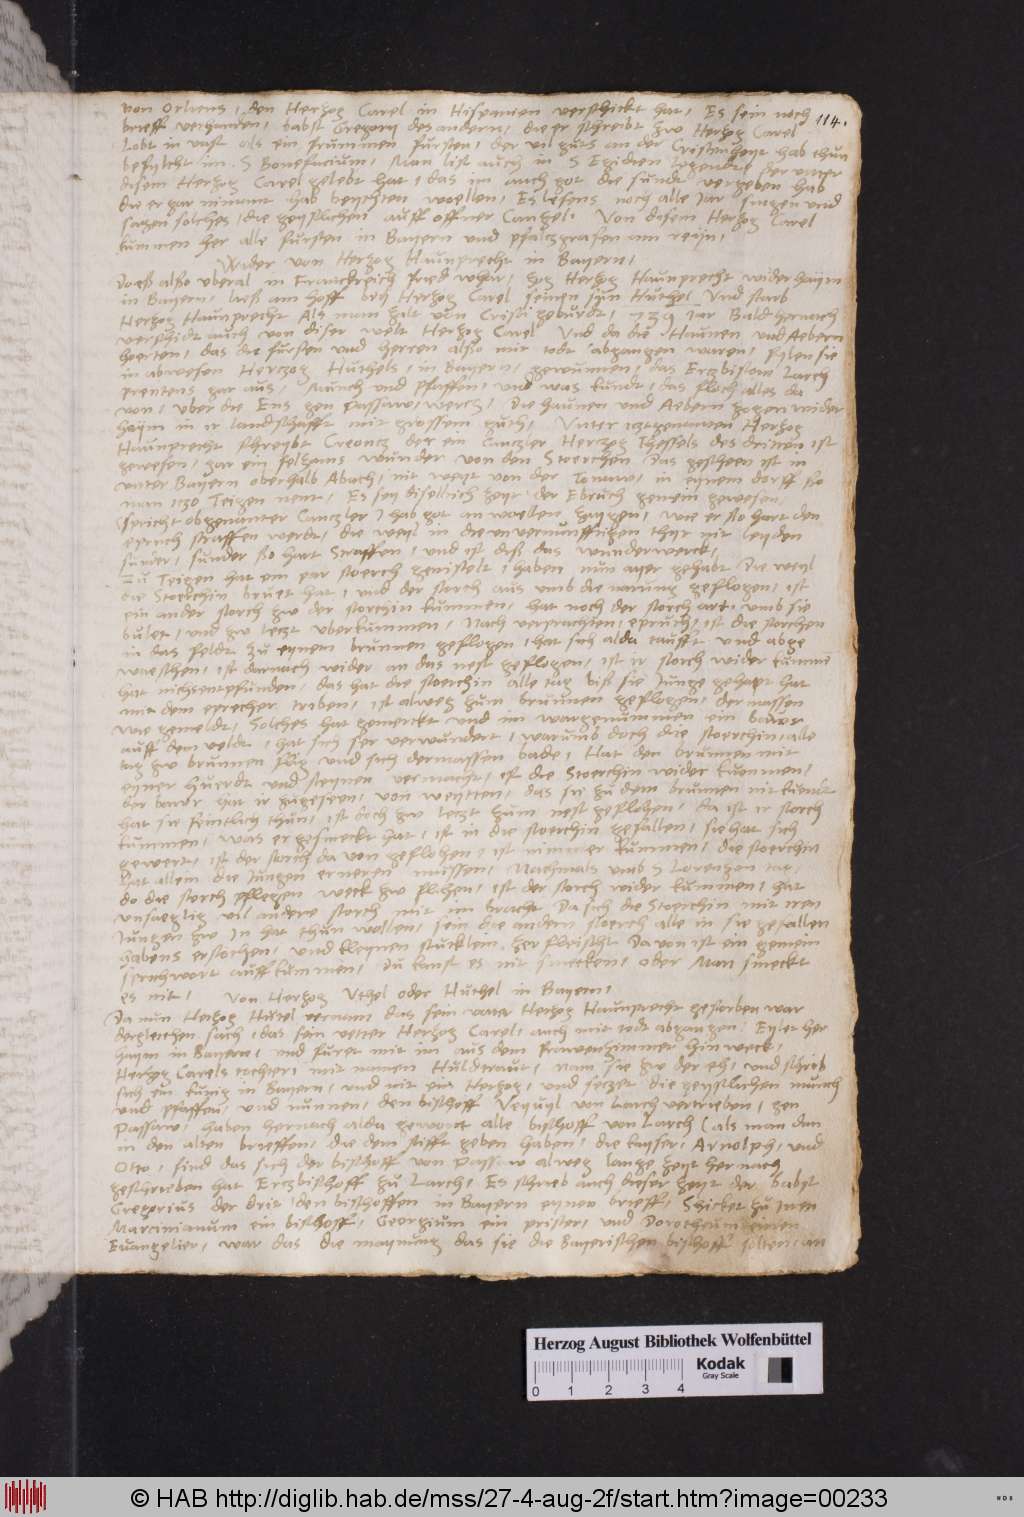 von Orliens, den Herzog Carel in Hispanien verschickt hat, Es sein noch
114.
brieff verhanden, babst Gregorij des andern, die er schreibt zw Herzog Carel
Lobt in vast als ein frummen fursten, der vil guts an der Cristenheyt hab thun
befylcht im S Bonefacium, Man list auch in S Egidien Legendt, der unter
disem Herzog Carel gelebt hat, das im auch got die sundt vergeben hab
die er gar nimant hab beychten woellen, Es lesens noch alle Jar singen und
sagen solches, die geystlichen auff offner Cantzel, Von disem Herzog Carel
kummen her alle fursten in Bayern und pfaltzgrafen am reyn,
Wider von Herzog Haunprecht in Bayern,
alßo uberal in Franckreich fried whar, zog Herzog Haunprecht wider haym
in Bayern, ließ am hoff bey Herzog Carel seinen syn Huthel, Und starb
Herzog Haunprecht Als man zalt von Cristi geburdt, 739 Jar Baldt hernach
verschidt auch von diser welt Herzog Carel Und da die Haunen und Aebern
hoerten, das die fursten und herren alßo mit todt abgangen waren, fylen sie
in abwesen Herczog Huthels, in Bayern, gewunnen, das Erczbistom Larch
prentens gar aus, Munch und pfaffen, und was kundt, das floch alles da
von, uber die Ens gen Passaw, werch, Die haunen und Aebern zogen wider
haym in ir landschafft mit grossem guth, Unter Herzog
Haunprecht schreybt Creoncz der ein Cantzler Herczog Thessels des dritten ist
gewesen, gar ein selzams wunder von den Stoerchen Das gescheen ist in
unter Bayern oberhalb Abach, nit weyt von der Tonaw, in eynem dorff ßo
man Teigen nent, Es sey diselbich zeyt der Ebruch gemein gewesen,
Spricht obgenanter Cantzler, hab got an woellen zaygen, wie er ßo hart den
epruch straffen werdt, die weyl in die unvernunfftigen thyr nit leyden
sunder, sunder ßo hart Straffen, und ist diß das wunderwerck,
Zu Teigen hat ein par stoerch genistelt, haben nun ayer gehabt Die weyl
die Stoerchin bruet hat, und der storch aus umb die narung geflogen, ist
ein ander storch zw der storchin kummen, hat noch der storch art, umb sie
bulet, und zw leczt uberkummen, Nach verprachten, epruch, ist die storchen
in das feldt zu eynem brunnen geflogen, hat sich alda taufft und abge
waschen, ist darnach wider an das nest geflogen, ist ir storch wider kummē
hat nichs entpfunden, das hat die stoerchin alle tag biß sie Junge gehapt hat
mit dem eprecher triben, ist alweg zum brunnen geflogen, der massen
wie gemeldt, Solches hat gemerckt und im wargenummen ein bawr
auff dem veldt, hat sich ser verwundert, warumb doch die stoerchin, alle
tag zw brunnen flig und sich dermassen bade, Hat den brunnen mit
eyner huerdt und steynen vermacht, ist die Stoerchin wider kummen,
der bawr hat ir zugesehen, von weytten, das sie zu dem brunnen nit kundt
hat sie feintlich thun, ist doch zw leczt zum nest geflohen, da ist ir storch
kummen, was er geschmeckt hat, ist in die stoerchin gefallen, sie hat sich
gewert, ist der storch da von geflohen, ist nimmer kummen, die stoerchin
hat allein die Jungen erneren mussen, Nachmals umb S Lorenzen tag,
do die storch pflegen weck zw flihen, ist der storch wider kummen, hat
unsaeglig vil andere storch mit im bracht Da sich die Stoerchin mit iren
Jungen zw In hat thun wollen, sein die andern stoerch alle in sie gefallen
habens erstochen, und kleynen stucklein zerfleischt Da von ist ein gemein
sprichwort auffkummen, du kanst es nit smecken, oder Man smeckt
es nit, Von Herzog Uthel oder Huthel in Bayern,
Da nun Herzog Huetel vernam das sein vater Herzog Haunprecht gestorben war
dergleichen sach, das sein vetter Herzog Carel, auch mit todt abgangen, Eylet her
haym in Bayern, und furet mit im aus dem frawenzimmer hinweck,
Herzog Carels tochter, mit namen Hulderaut, nam sie zw der eh, und schrib
sich ein kunig in Bayern, und nit ein Herzog, und seczet die geystlichen munch
und pfaffen, und nunnen, den bischoff von Larch vertrieben, gen
Passaw, haben hernach alda gewont alle bischoff von Larch (als man dan
in den alten brieffen, die dem stifft geben haben, die kayser, Arnolph, und
Otto, find das sich der bischoff von Passaw alweg lange zeyt hernach
geschrieben hat Erczbischoff zu Larch, Es schrieb auch dieser zeyt der babst
Gregorius der drit, den bischoffen in Bayern eynen brieff, Schicket zu Inen
Marcinianum ein bischoff, Georgium ein prister, und Dorotheum einen
Euangelier, war das die maynung das sie die Bayerischen bischoff solten, an
Herzog August Bibliothek Wolfenbüttel
Kodak
Gray Scale
0 1 2 3 4
© HAB http://diglib.hab.de/mss/27-4-aug-2f/start.htm?image=00233